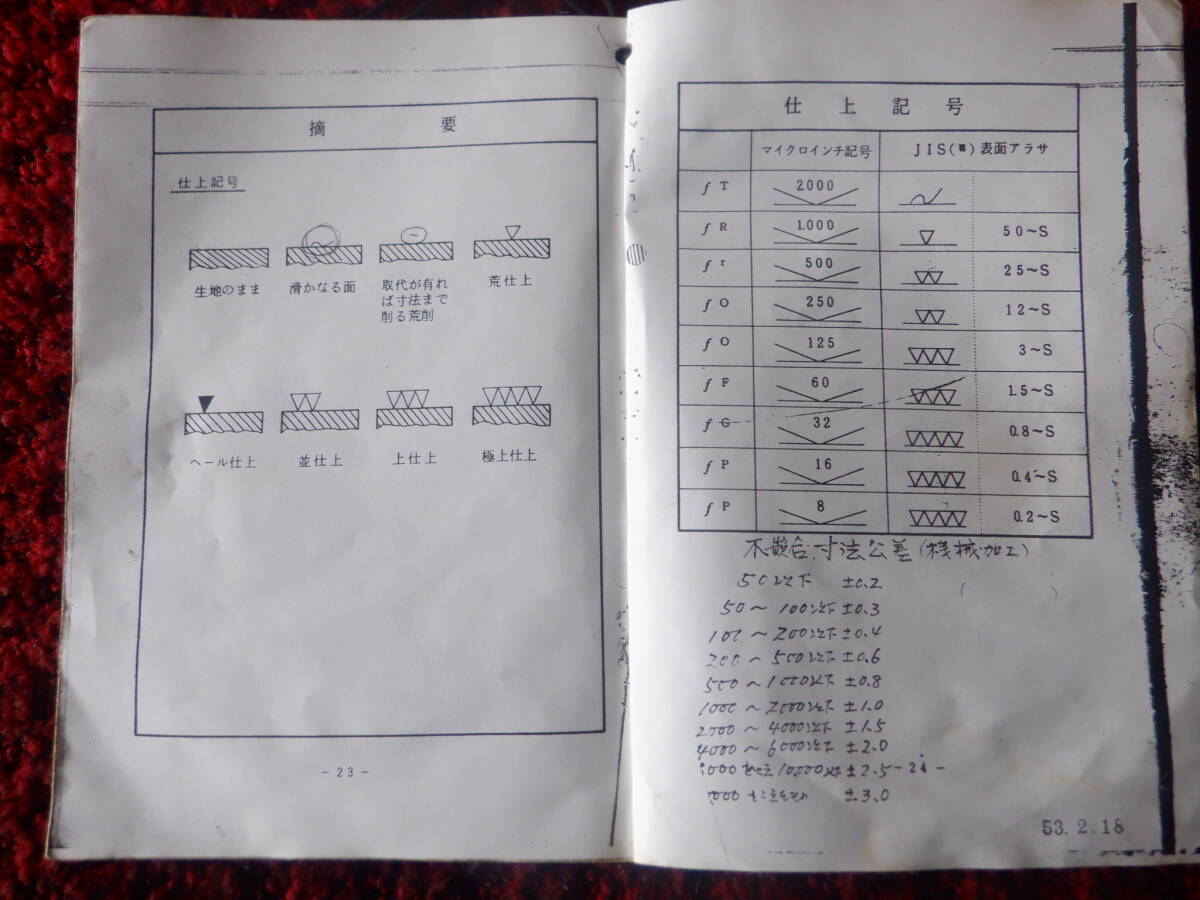 摘 要
仕上記号
生地のまま
滑かなる面
取代が有れ
ば寸法まで
削る荒削
荒仕上
ヘール仕上
並仕上
上仕上
極上仕上
- 23 -
仕上記号
マイクロインチ記号 JIS( )表面アラサ
f T 2000
f R 1.000 50~S
f r 500 25~S
f O 250 12~S
f O 125 3~S
f F 60 1.5~S
f G 32 0.8~S
f P 16 0.4~S
f P 8 0.2~S
不嵌合寸法公差(機械加工)
50以下 ±0.2
50~100以下 ±0.3
100~200以下 ±0.4
200~500以下 ±0.6
500~1000以下 ±0.8
1000~2000以下 ±1.0
2000~4000以下 ±1.5
4000~6000以下 ±2.0
000 10,000以下 ±2.5
- 24 -
000 ±3.0
53. 2. 18